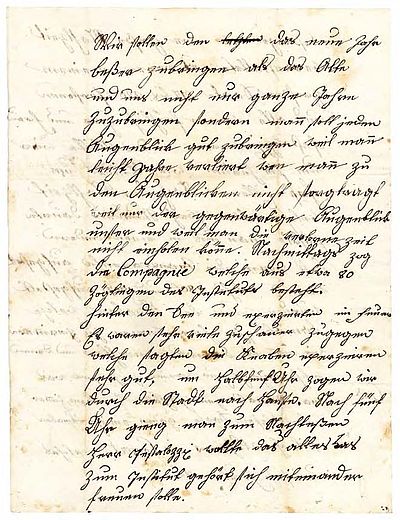 Wir sollen den letzten das neue Jahr
beßer zubringen als das Alte
und uns nicht nur ganze Jahre
zuzubringen sondern mann soll jeden
Augenblick gut zubringen weil mann
leicht Jahre verliert wen mann zu
den Augenblicken nicht sorg tragt
weil nur der gegenwärtige Augenblick
unser und weil man die verlorne Zeit
nicht einholen könne. Nachmittags zog
die Compagnie welche aus etwa 80
Zöglingen des Instituts besteht.
hinter den See und exerzierten im feuer
Es waren sehr viele Zuschauer zugegen
welche sagten die Knaben exerzieren
sehr gut, um halb fünf Uhr zogen wir
durch die Stadt nach Hause. Nach fünf
Uhr gieng man zum Nachtessen
Herr Pestalozzi wollte das alles was
zum Institut gehört sich miteinander
freuen solle.